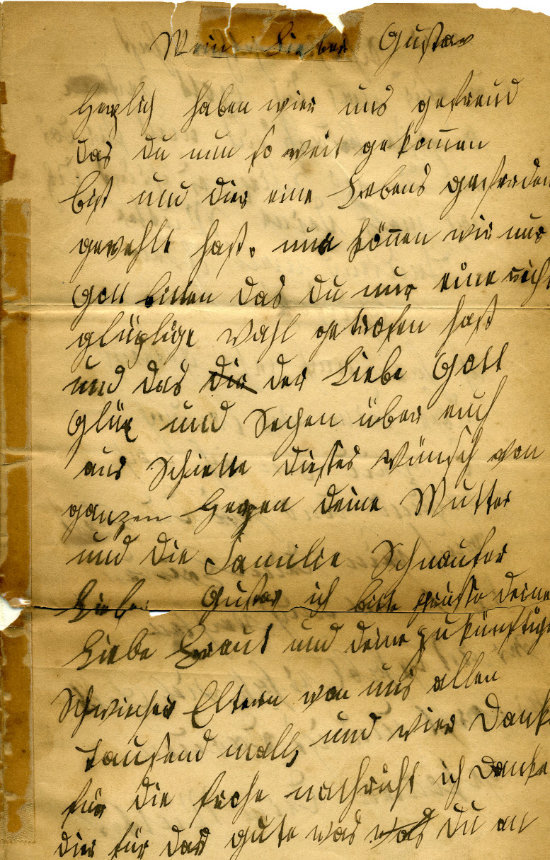 Mein Lieber Gustav
Herzlich haben wier uns gefreud
das du nun so weit gekommen
bist und dier eine Lebens geferden
gewehlt hast. nun können wir nur
Gott bitten das du nur eine
glükliche wahl getrofen hast
und das die der Liebe Gott
Glük und Sechen über euch
aus Schiette dieses wünsch von
ganzen Herzen deine Mutter
und die Familie Schnaufer
Liebe Gustav ich bitte grüsse deine
Liebe Braut und deine zukünftige
Schwieher Eltern von uns allen
tausend mall und wier Danke
für die frohe nachricht ich Danke
dier für das gute was was du an